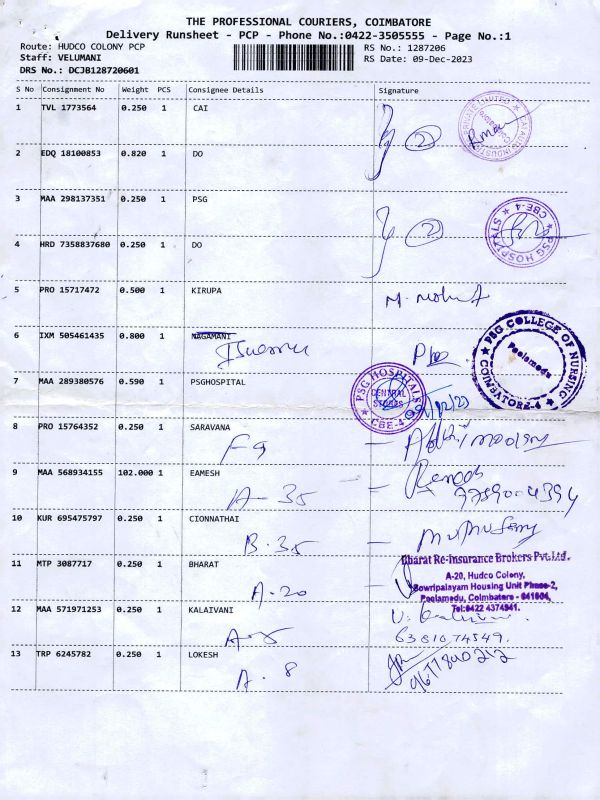 THE PROFESSIONAL COURIERS, COIMBATORE
Delivery Runsheet - PCP - Phone No.:0422-3505555 - Page No.:1
Route: HUDCO COLONY PCP
RS No.: 1287206
Staff: VELUMANI
RS Date: 09-Dec-2023
DRS No.: DCJB128720601
S No Consignment No Weight PCS Consignee Details Signature
1 TVL 1773564 0.250 1 CAI
2
2 EDQ 18100853 0.820 1 DO
3 MAA 298137351 0.250 1 PSG
2
PSG HOSPITALS ★ CBE-4 ★
4 HRD 7358837680 0.250 1 DO
5 PRO 15717472 0.500 1 KIRUPA
6 IXM 505461435 0.800 1 NAGAMANI
★ PSG COLLEGE OF NURSING ★ COIMBATORE-4
Peelamedu
7 MAA 289380576 0.590 1 PSGHOSPITAL
★ PSG HOSPITALS ★ CBE-4
CENTRAL STORES
8 PRO 15764352 0.250 1 SARAVANA
F9 -
9 MAA 568934155 102.000 1 EAMESH
A-35 -
10 KUR 695475797 0.250 1 CIONNATHAI
B-35 -
11 MTP 3087717 0.250 1 BHARAT
A-20 -
Bharat Re-Insurance Brokers Pvt.Ltd.
A-20, Hudco Colony,
Sowripalayam Housing Unit Phase-2,
Peelamedu, Coimbatore - 641004,
Tel:0422 4374941.
12 MAA 571971253 0.250 1 KALAIVANI
6381074549.
13 TRP 6245782 0.250 1 LOKESH
A-8
9677840212